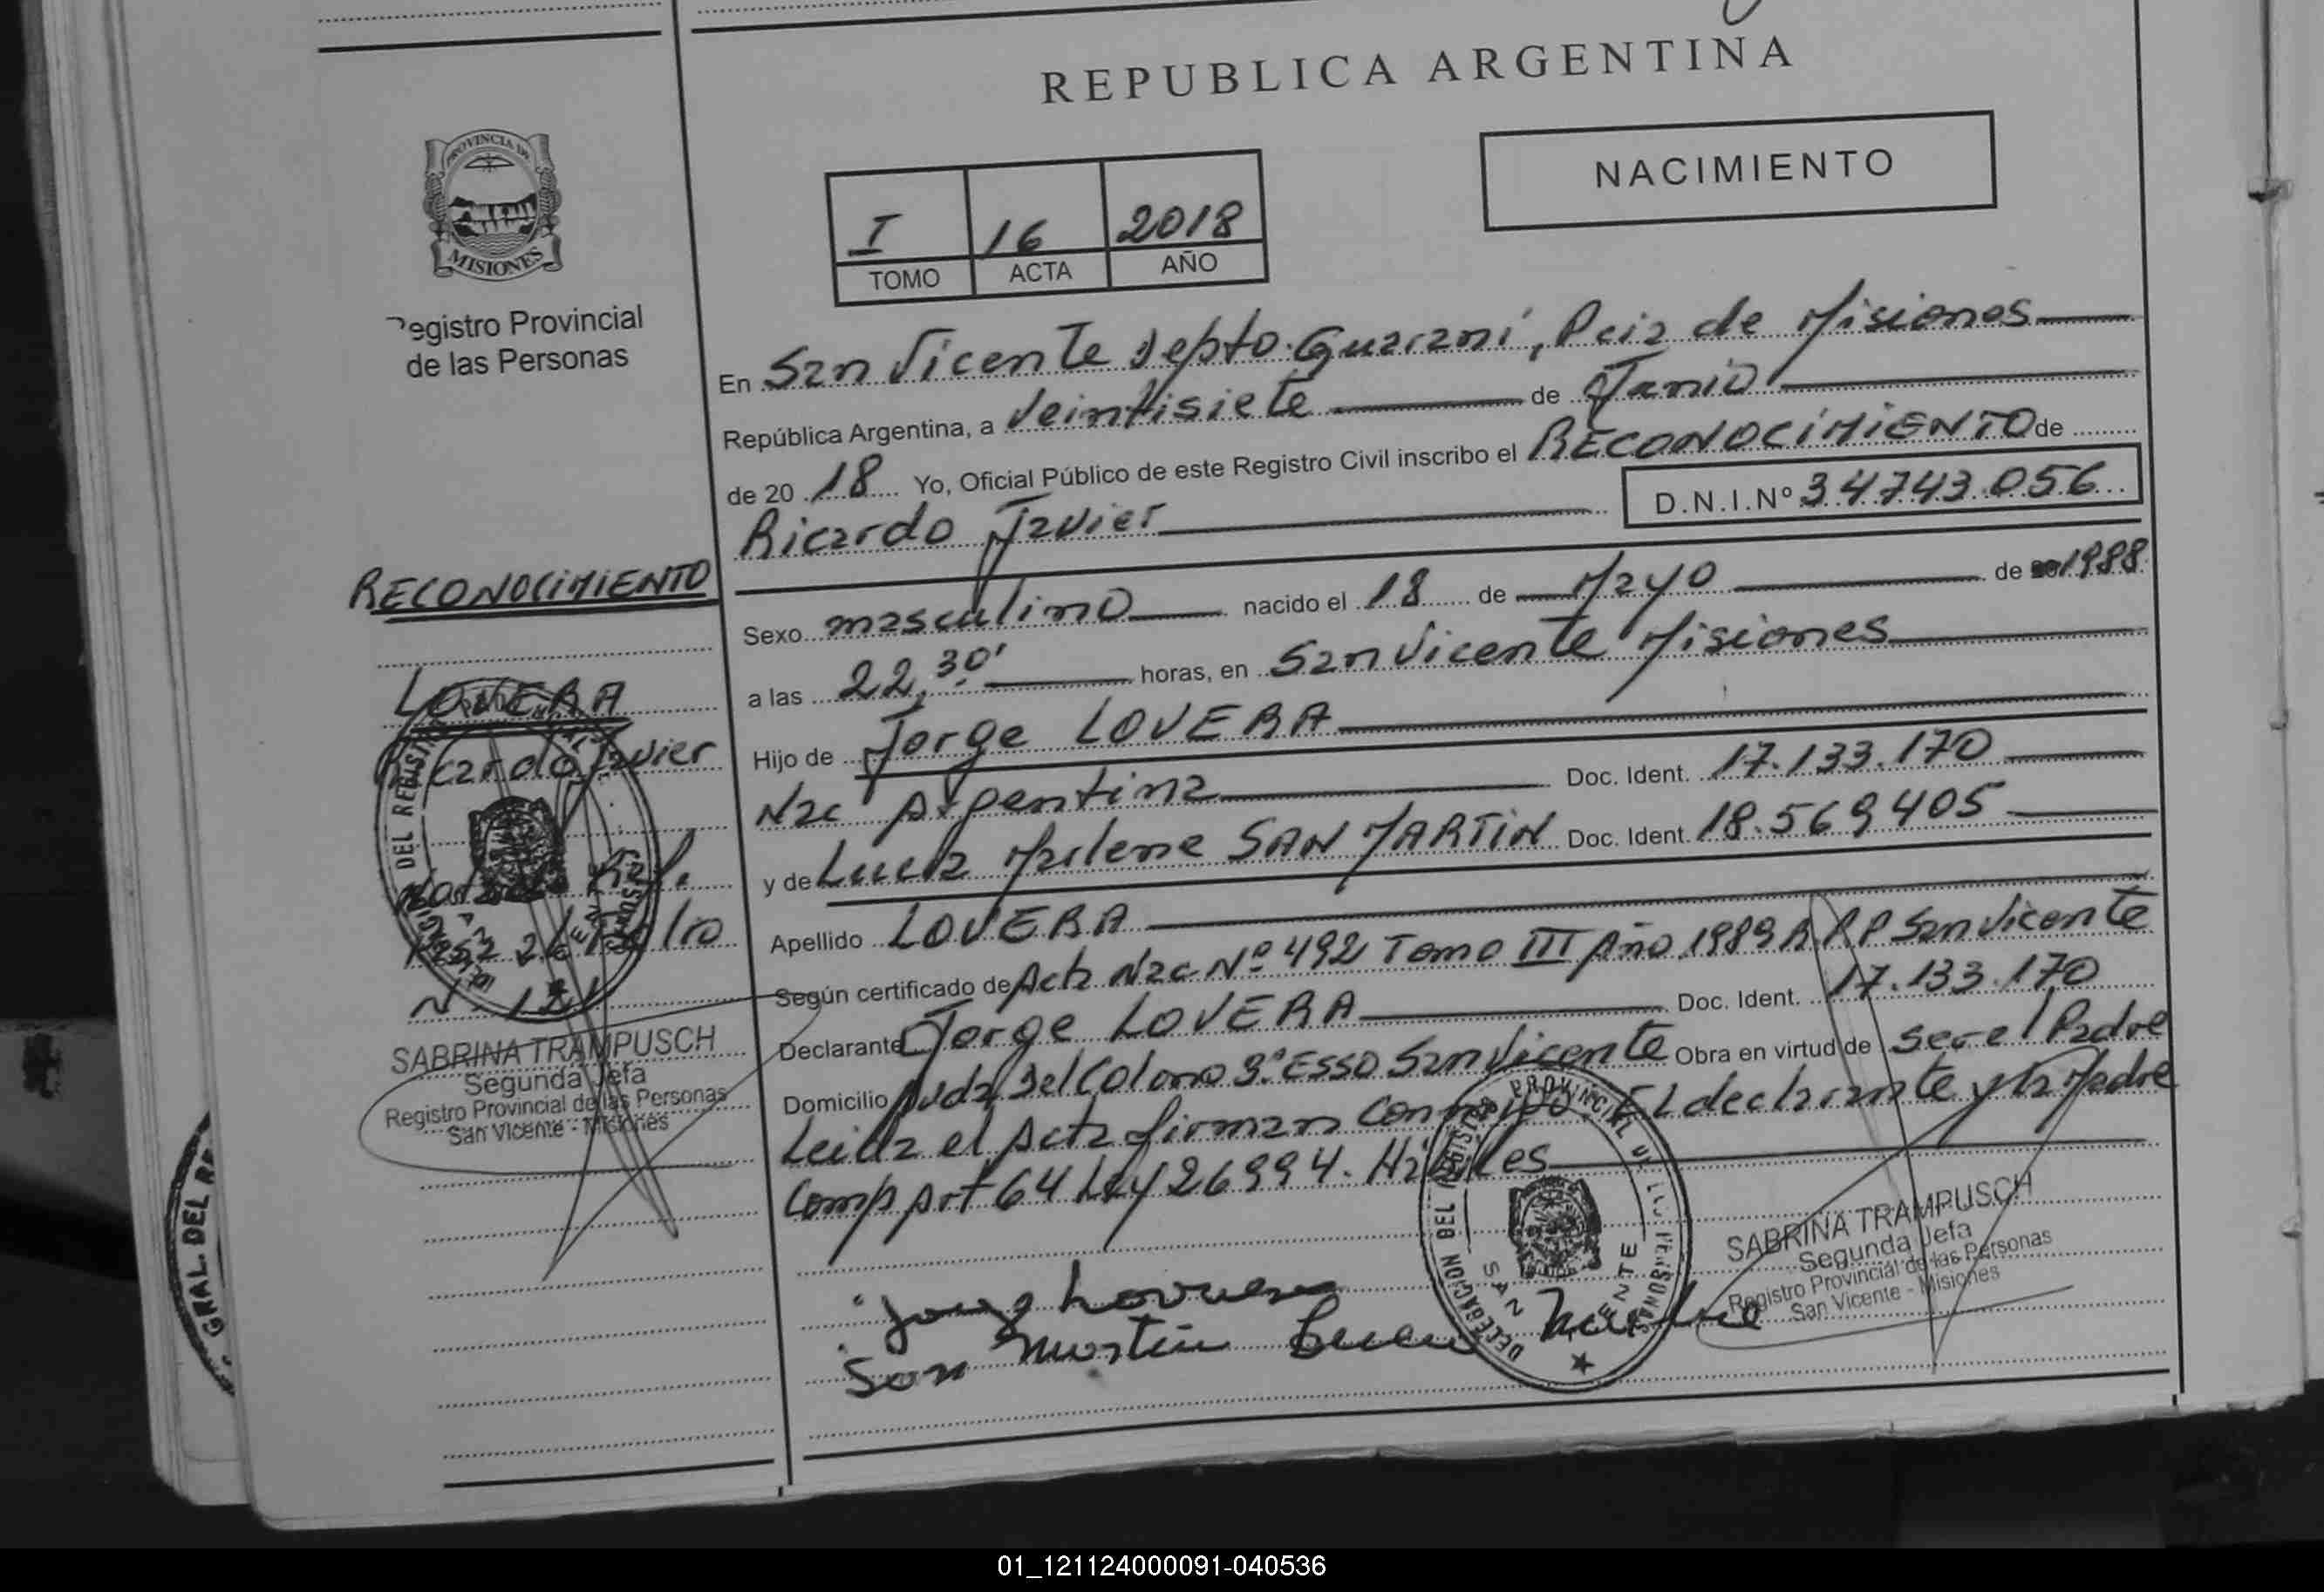 REPUBLICA ARGENTINA
NACIMIENTO
I 16 2018
TOMO ACTA AÑO
PROVINCIA DE
MISIONES
Registro Provincial
de las Personas
En San Vicente Depto. Guaraní, Pcia de Misiones
República Argentina, a Veintisiete de Junio
de 20 18 Yo, Oficial Público de este Registro Civil inscribo el RECONOCIMIENTO de
Ricardo Javier D.N.I.Nº 34743.056
Sexo masculino nacido el 18 de Mayo de 1988
a las 22,30' horas, en San Vicente Misiones
Hijo de Jorge LOVERA
Nac Argentina Doc. Ident. 17.133.170
y de Lucia Marlene SAN MARTIN Doc. Ident. 18.569405
Apellido LOVERA
Según certificado de Acta Nac Nº 492 Tomo III Año 1989 R.P.P San Vicente
Declarante Jorge LOVERA Doc. Ident. 17.133.170
Domicilio Avda. Del Colono Bº ESSO San Vicente Obra en virtud de ser el Padre
Leida el Acta firman conmigo El declarante y la Madre
Comp Art 64 Ley 26994. Hábiles
RECONOCIMIENTO
LOVERA
Ricardo Javier
Pasa al Folio
SABRINA TRAMPUSCH
Segunda Jefa
Registro Provincial de las Personas
San Vicente - Misiones
San Martin
DELEGACION DEL REGISTRO PROVINCIAL DE LAS PERSONAS
SAN VICENTE
SABRINA TRAMPUSCH
Segunda Jefa
Registro Provincial de las Personas
San Vicente - Misiones
GRAL. DEL RE
01_121124000091-040536